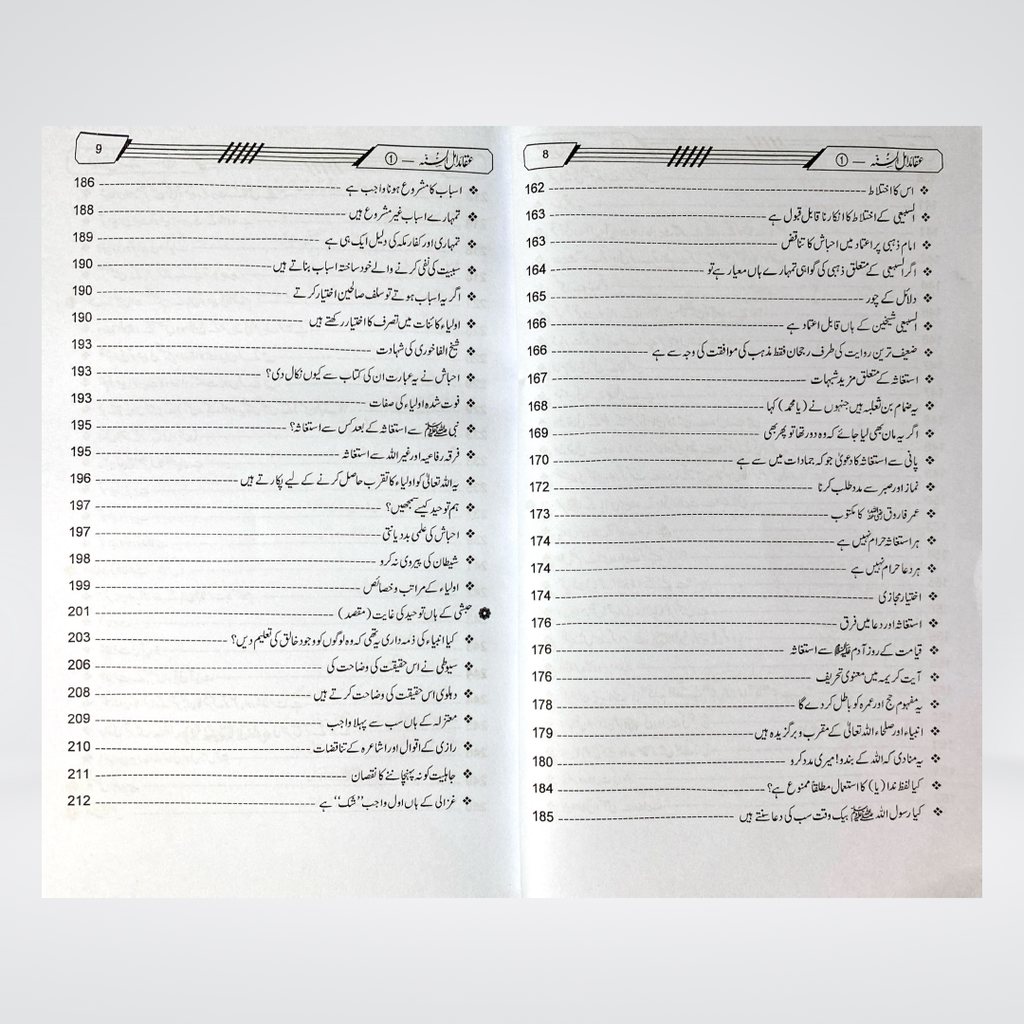 عقائد اہل السنہ — ① 8
❖ اس کا اختلاط 162
❖ السبیعی کے اختلاط کا انکار نا قابل قبول ہے 163
❖ امام ذہبی پر اعتماد میں احباش کا تناقض 163
❖ اگر السبیعی کے متعلق ذہبی کی گواہی تمہارے ہاں معیار ہے تو 164
❖ دلائل کے چور 165
❖ السبیعی شیخین کے ہاں قابل اعتماد ہے 166
❖ ضعیف ترین روایت کی طرف رجحان فقط مذہب کی موافقت کی وجہ سے ہے 166
❖ استغاثہ کے متعلق مزید شبہات 167
❖ یہ ضمام بن ثعلبہ ہیں جنہوں نے (یا محمد) کہا 168
❖ اگر یہ مان بھی لیا جائے کہ وہ دور تھا تو پھر بھی 169
❖ پانی سے استغاثہ کا دعویٰ جو کہ جمادات میں سے ہے 170
❖ نماز اور صبر سے مدد طلب کرنا 172
❖ عمر فاروق رضی اللہ عنہ کا مکتوب 173
❖ ہر استغاثہ حرام نہیں ہے 174
❖ ہر دعا حرام نہیں ہے 174
❖ اختیار مجازی 174
❖ استغاثہ اور دعا میں فرق 176
❖ قیامت کے روز آدم علیہ السلام سے استغاثہ 176
❖ آیت کریمہ میں معنوی تحریف 176
❖ یہ مفہوم حج اور عمرہ کو باطل کر دے گا 178
❖ انبیاء اور صلحاء اللہ تعالیٰ کے مقرب و برگزیدہ ہیں 179
❖ یہ منادی کہ اللہ کے بندو! میری مدد کرو 180
❖ کیا لفظ ندا (یا) کا استعمال مطلقاً ممنوع ہے؟ 184
❖ کیا رسول اللہ ﷺ بیک وقت سب کی دعا سنتے ہیں 185
عقائد اہل السنہ — ① 9
❖ اسباب کا مشروع ہونا واجب ہے 186
❖ تمہارے اسباب غیر مشروع ہیں 188
❖ تمہاری اور کفار مکہ کی دلیل ایک ہی ہے 189
❖ سببیت کی نفی کرنے والے خود ساختہ اسباب بناتے ہیں 190
❖ اگر یہ اسباب ہوتے تو سلف صالحین اختیار کرتے 190
❖ اولیاء کائنات میں تصرف کا اختیار رکھتے ہیں 190
❖ شیخ الفاخوری کی شہادت 193
❖ احباش نے یہ عبارت ان کی کتاب سے کیوں نکال دی؟ 193
❖ فوت شدہ اولیاء کی صفات 193
❖ نبی ﷺ سے استغاثہ کے بعد کس سے استغاثہ؟ 195
❖ فرقہ رفاعیہ اور غیر اللہ سے استغاثہ 195
❖ یہ اللہ تعالیٰ کو اولیاء کا تقرب حاصل کرنے کے لیے پکارتے ہیں 196
❖ ہم توحید کیسے سمجھیں؟ 197
❖ احباش کی علمی بددیانتی 197
❖ شیطان کی پیروی نہ کرو 198
❖ اولیاء کے مراتب و خصائص 199
❁ حبشی کے ہاں توحید کی غایت (مقصد) 201
❖ کیا انبیاء کی ذمہ داری یہ تھی کہ وہ لوگوں کو وجود خالق کی تعلیم دیں؟ 203
❖ سیوطی نے اس حقیقت کی وضاحت کی 206
❖ دہلوی اس حقیقت کی وضاحت کرتے ہیں 208
❖ معتزلہ کے ہاں سب سے پہلا واجب 209
❖ رازی کے اقوال اور اشاعرہ کے تناقضات 210
❖ جاہلیت کو نہ پہچاننے کا نقصان 211
❖ غزالی کے ہاں اول واجب ”شک“ ہے 212